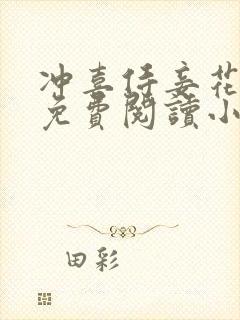 冲喜侍妾花
免費閱讀小
田彩